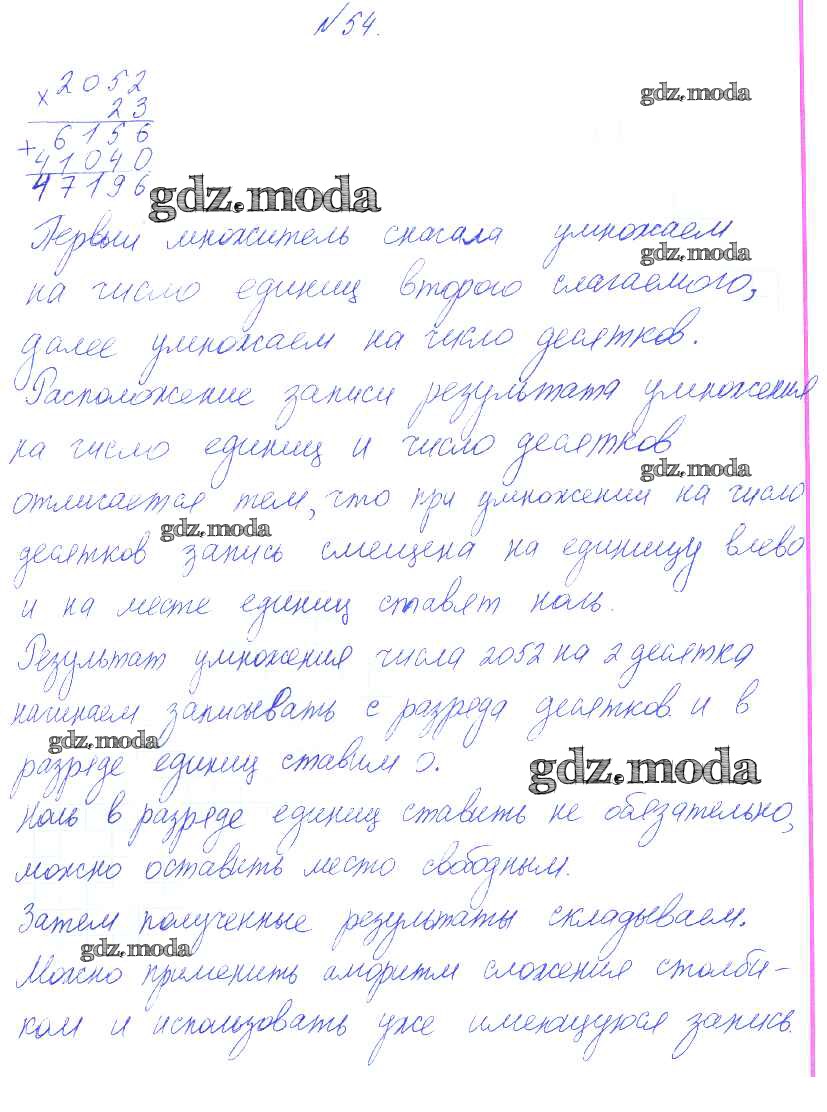 № 54.
× 2052
23
+ 6156
41040
47196
gdz.moda
gdz.moda
Первый множитель сначала умножаем
gdz.moda
на число единиц второго слагаемого,
далее умножаем на число десятков.
Расположение записи результата умножения
на число единиц и число десятков
gdz.moda
отличается тем, что при умножении на число
gdz.moda
десятков запись смещена на единицу влево
и на месте единиц ставят ноль.
Результат умножения числа 2052 на 2 десятка
начинаем записывать с разряда десятков и в
gdz.moda
разряде единиц ставим 0.
gdz.moda
Ноль в разряде единиц ставить не обязательно,
можно оставить место свободным.
Затем полученные результаты складываем.
gdz.moda
Можно применить алгоритм сложения столби-
ком и использовать уже имеющуюся запись.